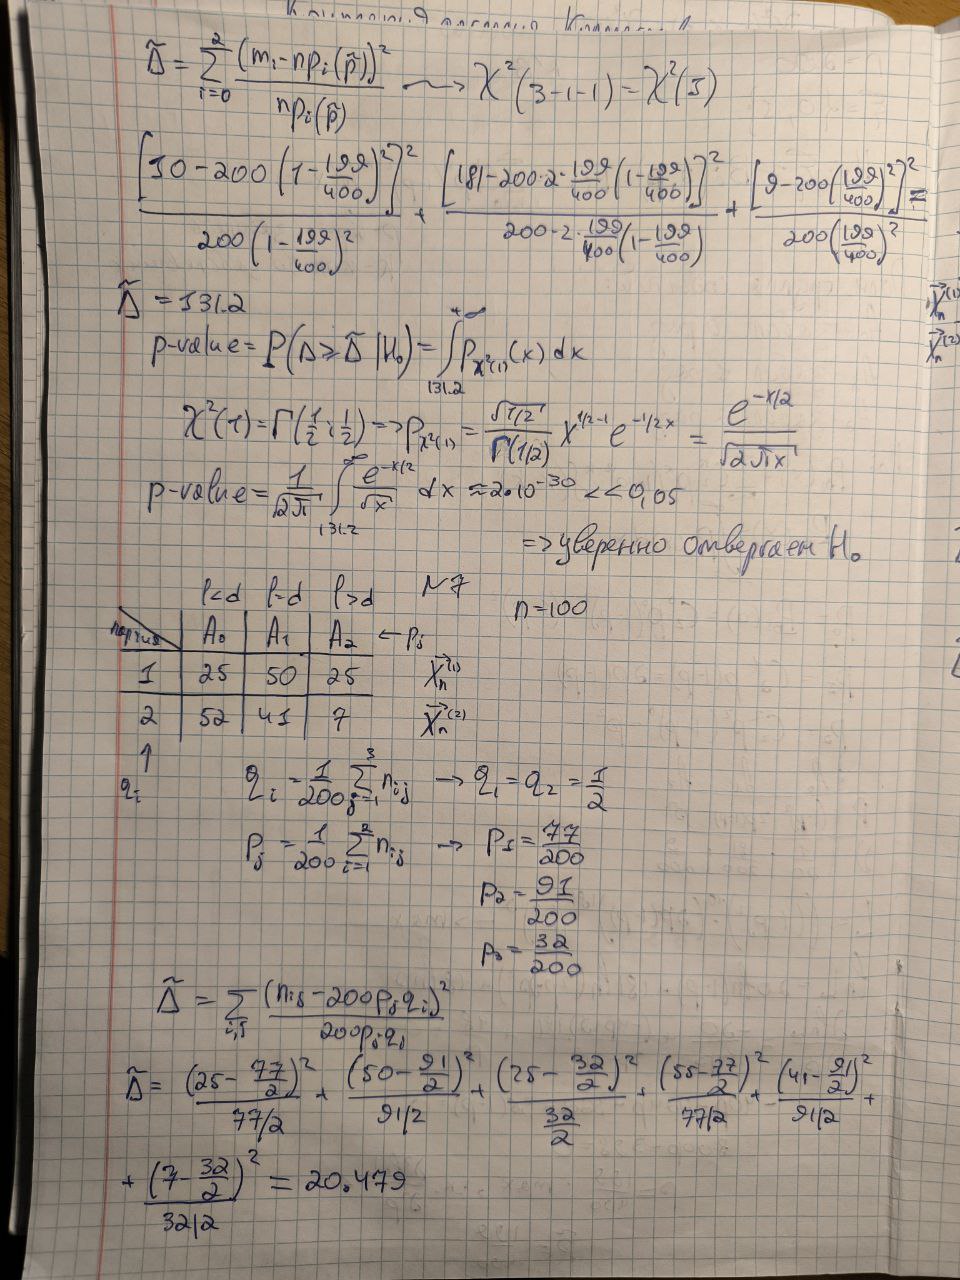 Δ̃ = Σ_{i=0}^{2} (m_i - np_i(p̃))² / np_i(p̃) ⟿ χ²(3-1-1) = χ²(1)
[10 - 200(1 - 199/400)²]² / 200(1 - 199/400)² + [181 - 200·2·199/400(1 - 199/400)]² / 200·2·199/400(1 - 199/400) + [9 - 200(199/400)²]² / 200(199/400)² =
Δ̃ = 131.2
p-value = P(Δ ≥ Δ̃ | H₀) = ∫_{131.2}^{+∞} p_{χ²(1)}(x) dx
χ²(1) = Γ(1/2; 1/2) => p_{χ²(1)} = √(1/2) / Γ(1/2) x^{1/2-1} e^{-1/2x} = e^{-x/2} / √(2πx)
p-value = 1/√(2π) ∫_{131.2}^{∞} e^{-x/2}/√x dx ≈ 2·10^{-30} << 0,05
=> уверенно отвергаем H₀
l<d l=d l>d №7
n=100
партия A₀ A₁ A₂ ← p_j
1 25 50 25 X⃗_n^{(1)}
2 52 41 7 X⃗_n^{(2)}
↑
q_i
q_i = 1/200 Σ_{j=1}^{3} n_{ij} → q₁ = q₂ = 1/2
p_j = 1/200 Σ_{i=1}^{2} n_{ij} → p₁ = 77/200
p₂ = 91/200
p₃ = 32/200
Δ̃ = Σ_{i,j} (n_{ij} - 200p_jq_i)² / 200p_iq_j
Δ̃ = (25 - 77/2)² / 77/2 + (50 - 91/2)² / 91/2 + (25 - 32/2)² / 32/2 + (55 - 77/2)² / 77/2 + (41 - 91/2)² / 91/2 +
+ (7 - 32/2)² / 32/2 = 20.479
X⃗_n^{(1)}
X⃗_n^{(2)}